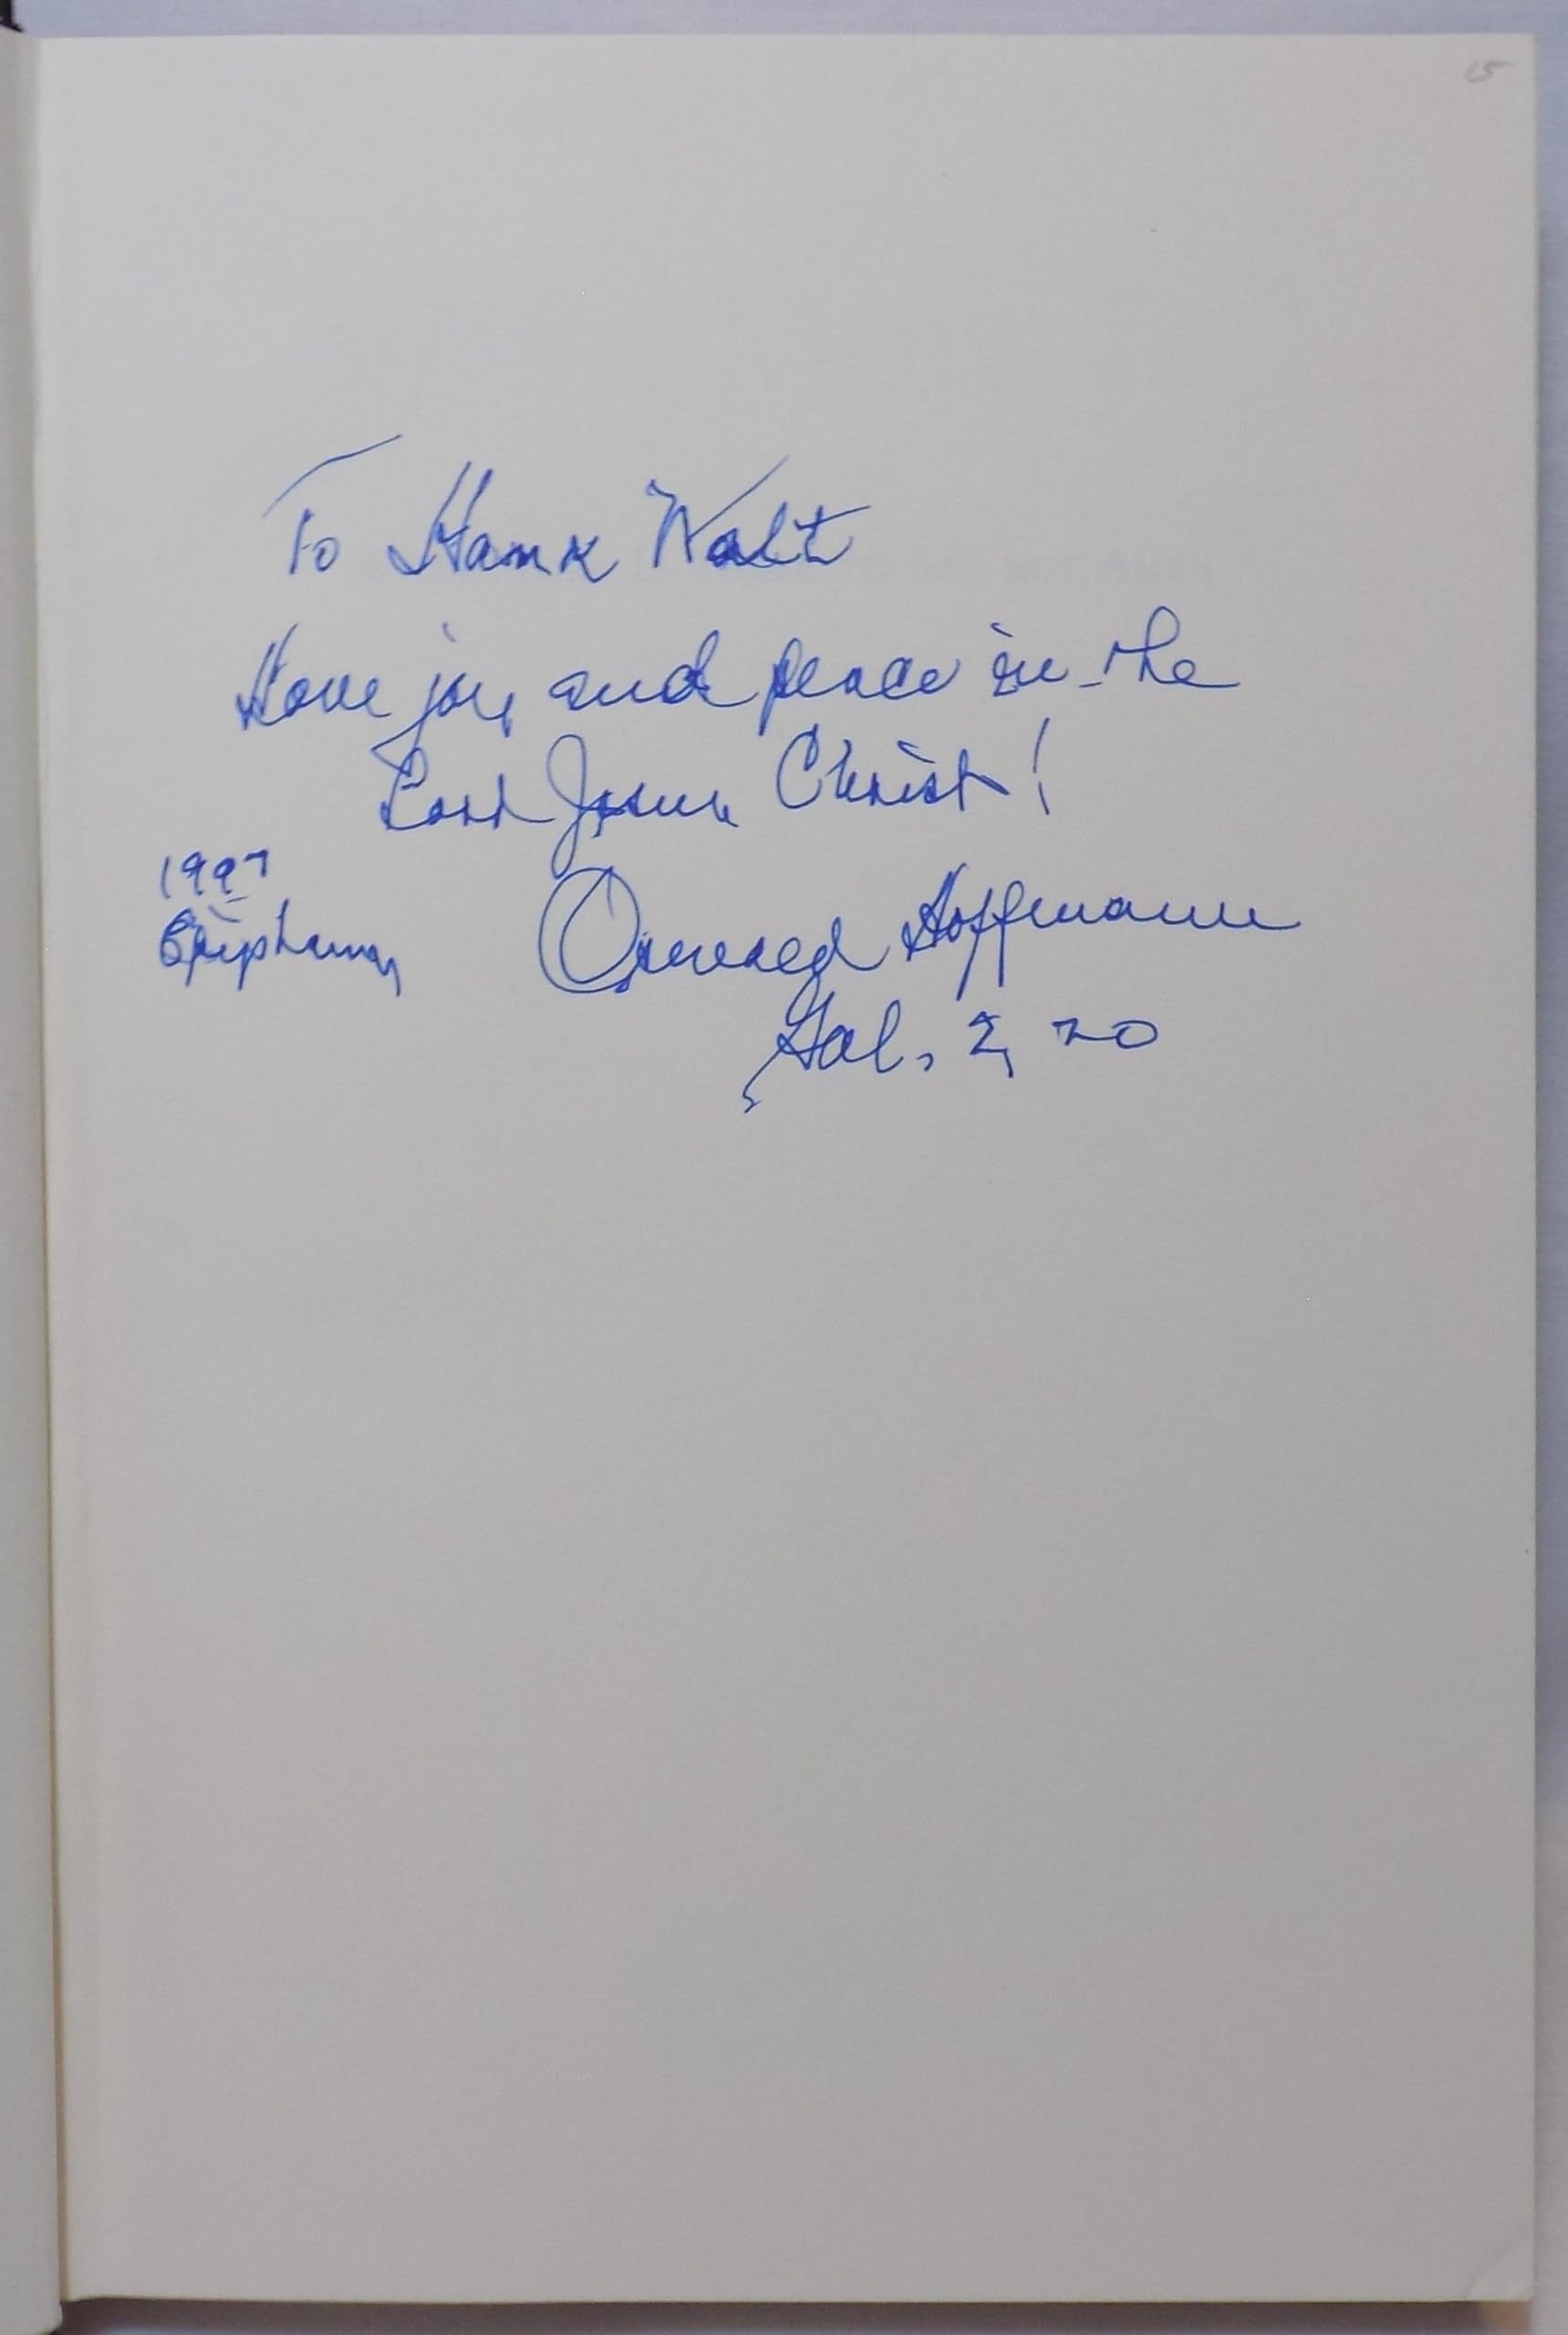 15
To Hank Walt
Have joy and peace in the
Lord Jesus Christ!
1997
Epiphany
Oswald Hoffmann
Gal. 2, 20